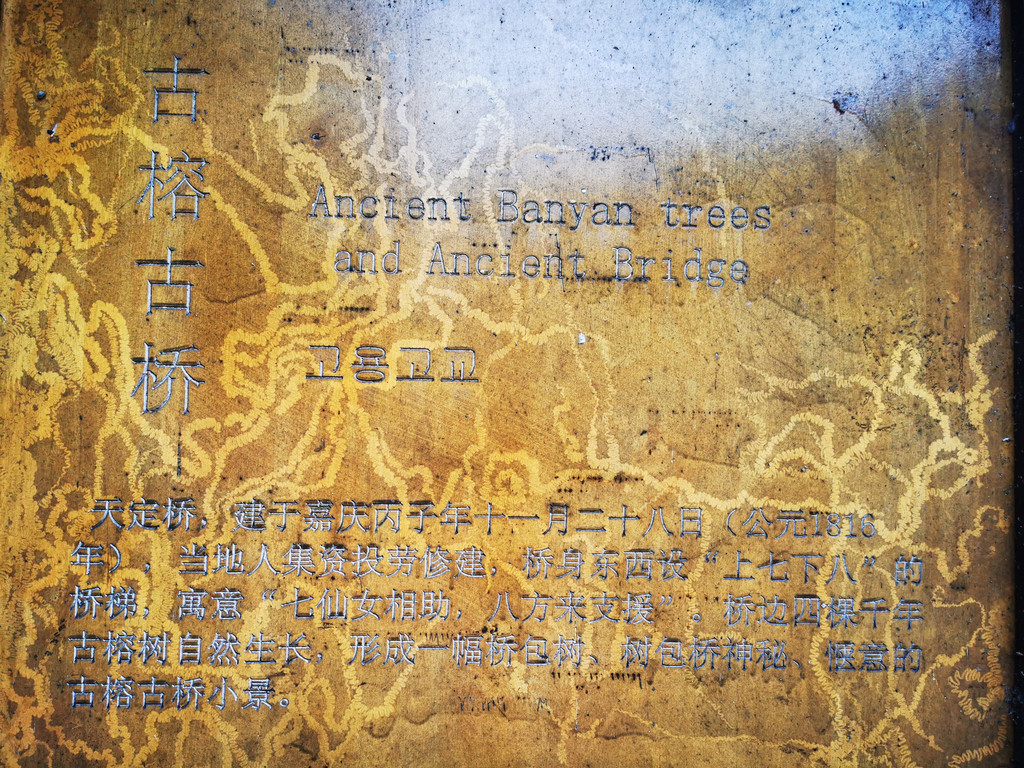 古榕古桥
Ancient Banyan trees
and Ancient Bridge
고용고교
天定桥，建于嘉庆丙子年十一月二十八日（公元1816
年），当地人集资投劳修建，桥身东西设“上七下八”的
桥梯，寓意“七仙女相助，八方来支援”。桥边四棵千年
古榕树自然生长，形成一幅桥包树、树包桥神秘、惬意的
古榕古桥小景。